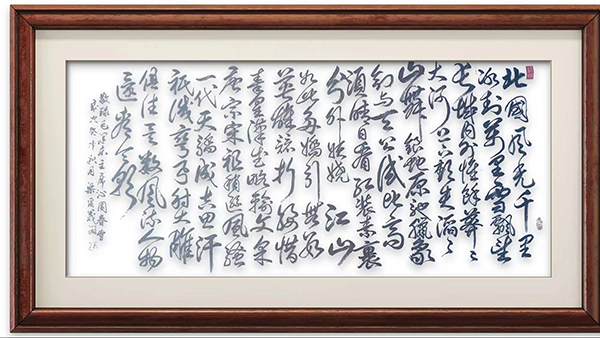 北國風光千里
冰封萬里雪飄望
長城內外惟餘莽〻
大河上下頓失滔〻
山舞銀蛇原馳臘象
欲與天公試比高
須晴日看紅裝素裹
分外妖嬈 江山
如此多嬌引無數
英雄競折腰惜
秦皇漢武略輸文采
唐宗宋祖稍遜風騷
一代天驕成吉思汗
衹識彎弓射大雕
俱往矣數風流人物
還看今朝
敬錄毛澤東主席沁園春雪
癸卯秋月